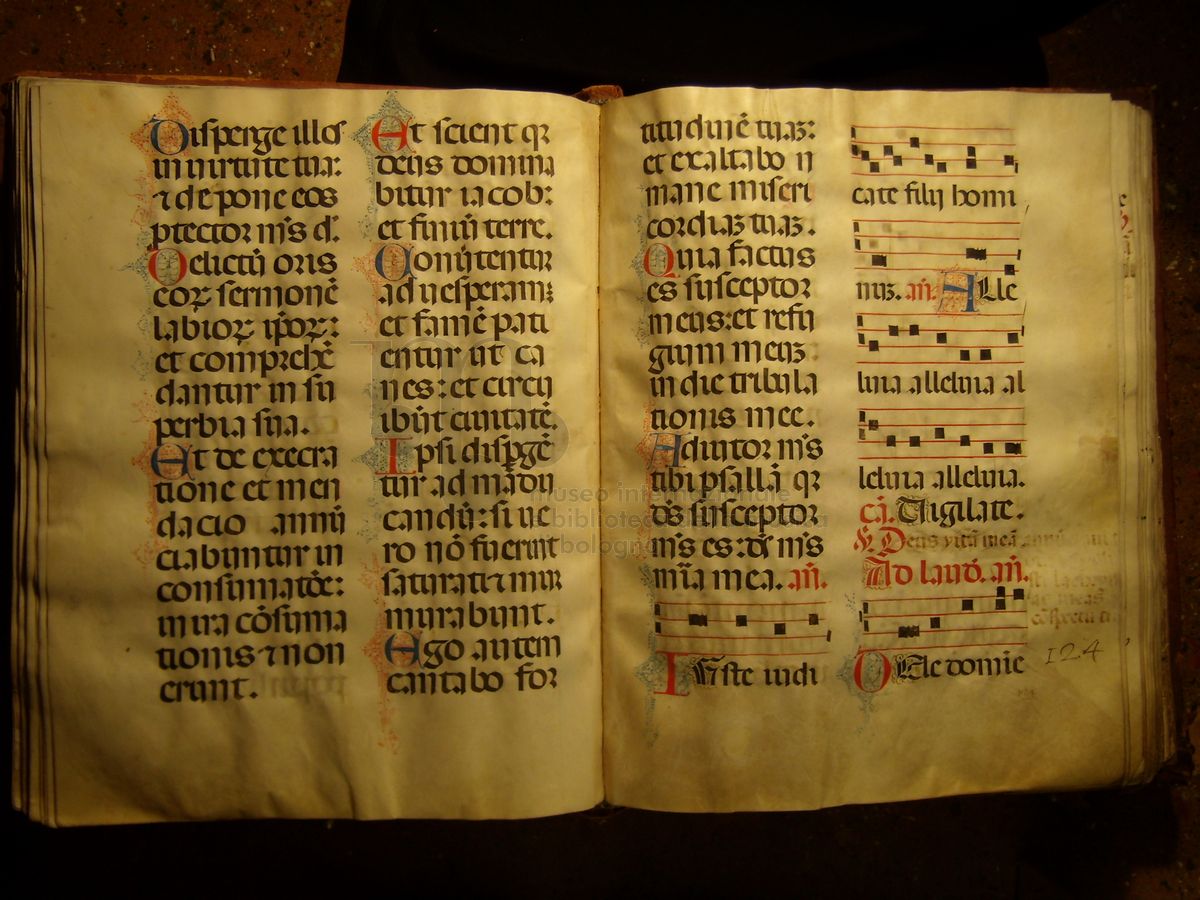 Disperge illos
in uirtute tua:
⁊ depone eos
ptector m̃s d̃.
Delictũ oris
eoꝝ sermonẽ
labioꝝ ip̃oꝝ:
et compreħẽ
dantur in su
perbia sua.
Et de execra
tione et men
dacio annũ
ciabuntur in
consumatõe:
in ira cõsuma
tionis ⁊ non
erunt.
Et scient qꝛ
deus domina
bitur iacob:
et finiũ terre.
Conũtentur
ad uesperam:
et famẽ pati
entur ut ca
nes: et circũ
ibũt ciuitatẽ.
Ipsi dispgẽ
tur ad mãdu
candũ: si ue
ro nõ fuerint
saturati ⁊ mur
murabunt.
Ego autem
cantabo for
titudinẽ tuaꝫ:
et exaltabo m
mane miseri
cordiaꝫ tuaꝫ.
Quia factus
es susceptor
meus: et refu
gium meuꝫ
in die tribula
tionis mee.
Adiutor m̃s
tibi psallã qꝛ
d̃s susceptor
m̃s es: d̃s m̃s
mĩa mea. añ.
Iuste iudi
cate filij homi
nuꝫ. añ. Alle
luia alleluia al
leluia alleluia.
cã. Uigilate.
℣ Deus vitã meã
Ad laud̃. añ.
Ele domie
124
museo internazionale
biblioteca
bologna